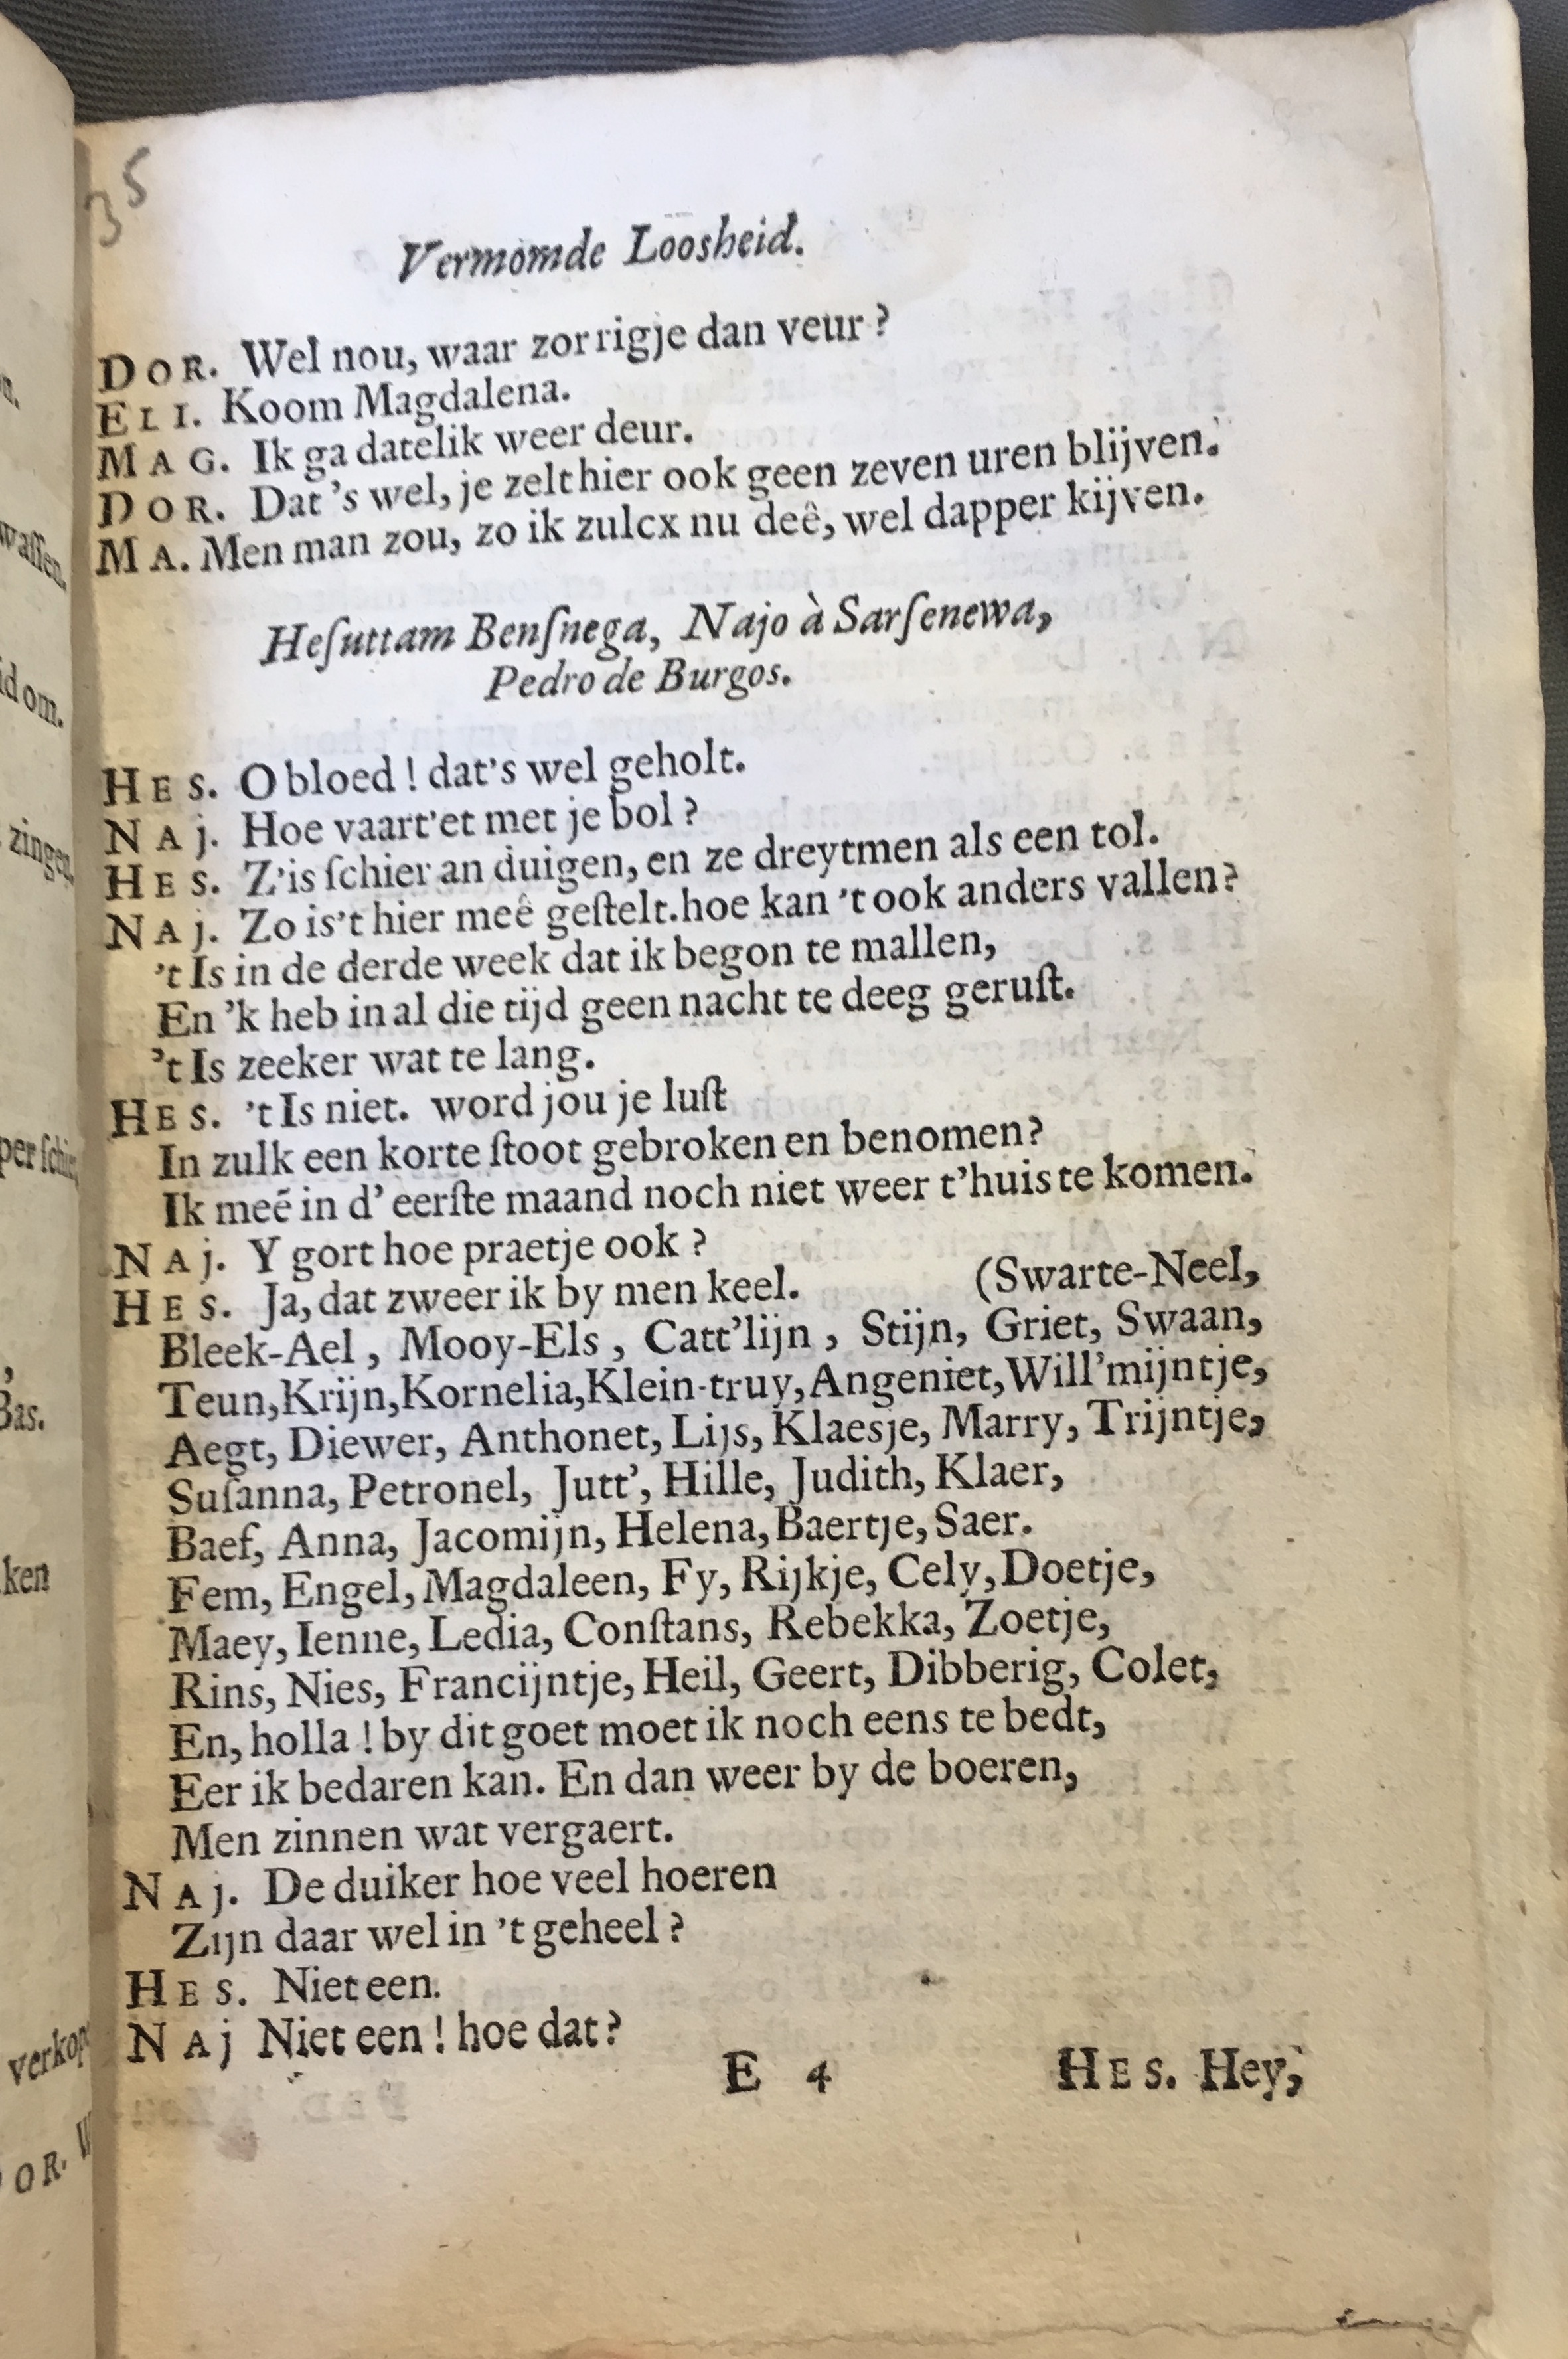 35
Vermomde Loosheid.
DOR. Wel nou, waar zorrigje dan veur?
ELI. Koom Magdalena.
MAG. Ik ga datelik weer deur.
DOR. Dat 's wel, je zelt hier ook geen zeven uren blijven.
MA. Men man zou, zo ik zulcx nu deê, wel dapper kijven.
Heſuttam Benſnega, Najo à Sarſenewa,
Pedro de Burgos.
HES. O bloed! dat's wel geholt.
NAj. Hoe vaart'et met je bol?
HES. Z'is ſchier an duigen, en ze dreytmen als een tol.
NAj. Zo is't hier meê geſtelt. hoe kan 't ook anders vallen?
't Is in de derde week dat ik begon te mallen,
En 'k heb in al die tijd geen nacht te deeg geruſt.
't Is zeeker wat te lang.
HES. 't Is niet. word jou je luſt
In zulk een korte ſtoot gebroken en benomen?
Ik meẽ in d' eerſte maand noch niet weer t'huis te komen.
NAj. Y gort hoe praetje ook?
HES. Ja, dat zweer ik by men keel. (Swarte-Neel,
Bleek-Ael, Mooy-Els, Catt'lijn, Stijn, Griet, Swaan,
Teun, Krijn, Kornelia, Klein-truy, Angeniet, Will'mijntje,
Aegt, Diewer, Anthonet, Lijs, Klaesje, Marry, Trijntje,
Suſanna, Petronel, Jutt', Hille, Judith, Klaer,
Baef, Anna, Jacomijn, Helena, Baertje, Saer.
Fem, Engel, Magdaleen, Fy, Rijkje, Cely, Doetje,
Maey, Ienne, Ledia, Conſtans, Rebekka, Zoetje,
Rins, Nies, Francijntje, Heil, Geert, Dibberig, Colet,
En, holla! by dit goet moet ik noch eens te bedt,
Eer ik bedaren kan. En dan weer by de boeren,
Men zinnen wat vergaert.
NAj. De duiker hoe veel hoeren
Zijn daar wel in 't geheel?
HES. Niet een.
NAj Niet een! hoe dat?
E 4 HES. Hey,
waſſen.
id om.
zingen,
Bas.
ken